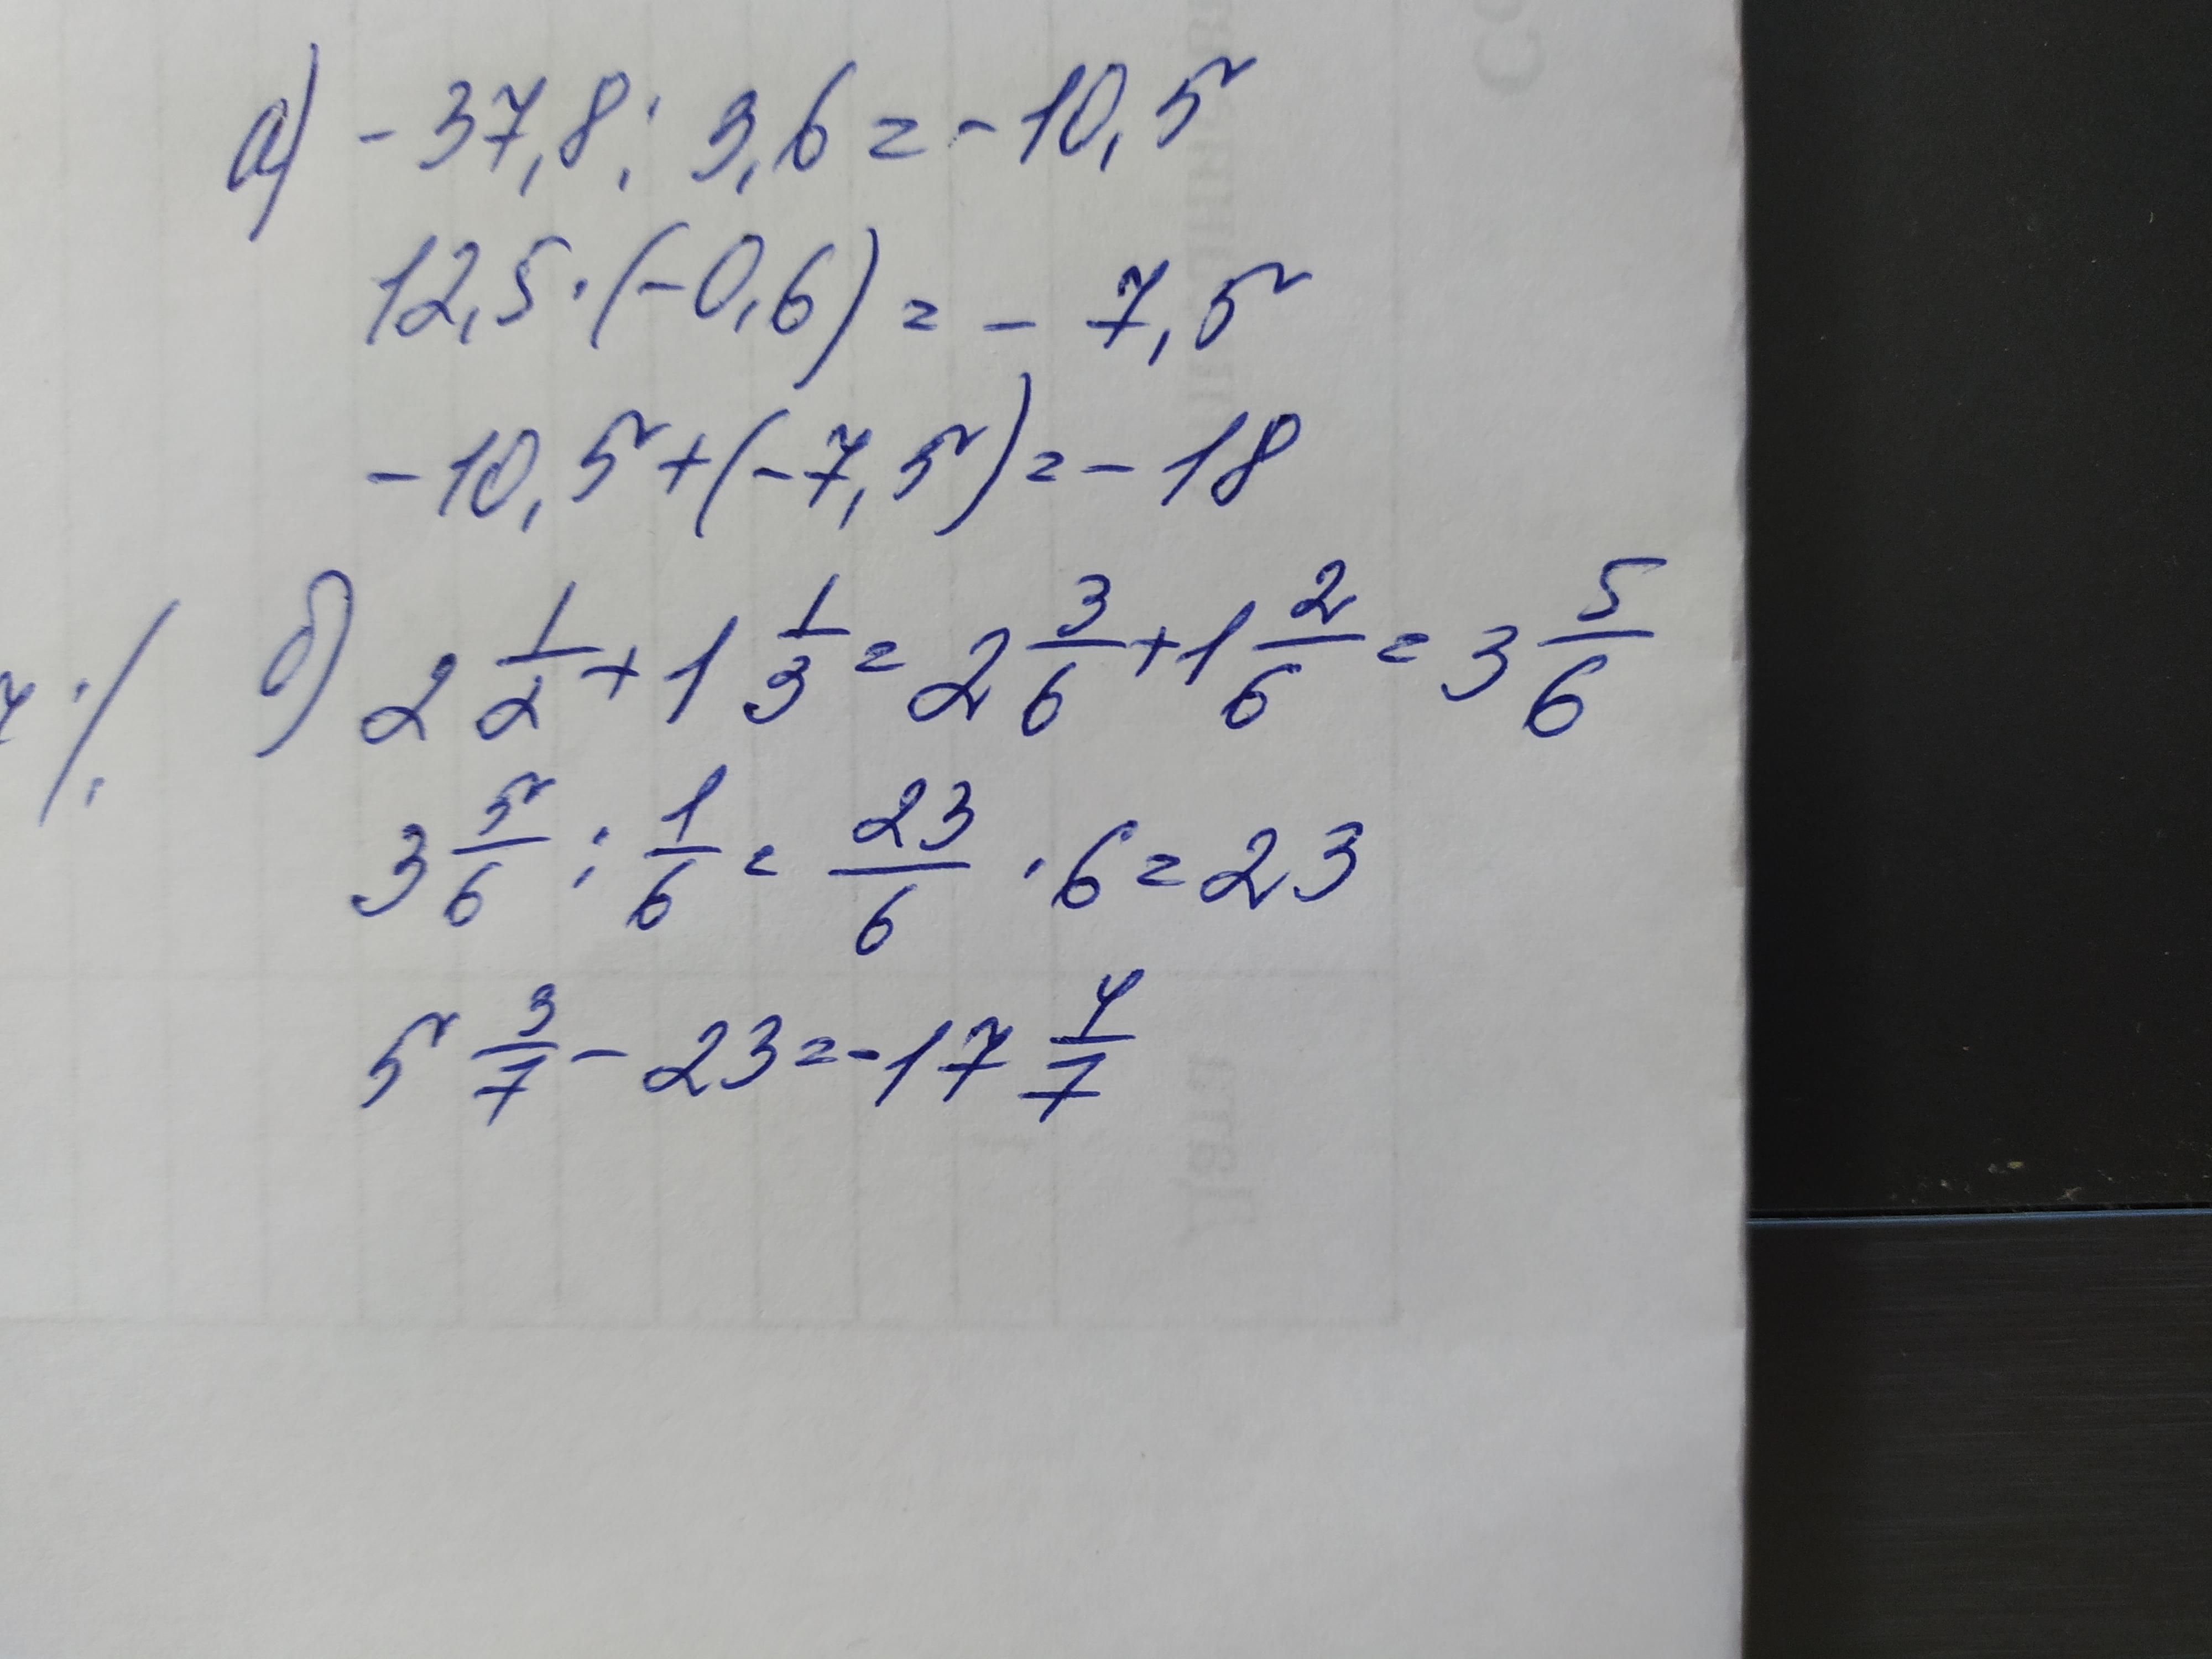 а) -37,8 : 3,6 = -10,5
12,5 · (-0,6) = -7,5
-10,5 + (-7,5) = -18
б) 2 1/2 + 1 1/3 = 2 3/6 + 1 2/6 = 3 5/6
3 5/6 : 1/6 = 23/6 · 6 = 23
5 3/7 - 23 = -17 4/7